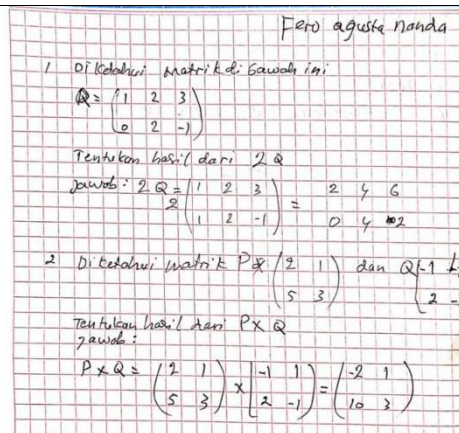 Fero agusta nanda
1 Diketahui matrik di bawah ini
Q = (1 2 3
0 2 -1)
Tentukan hasil dari 2Q
Jawab: 2Q = 2 (1 2 3
1 2 -1) = 2 4 6
0 4 2
2 Diketahui matrik P (2 1
5 3) dan Q (-1
2
Tentukan hasil dari P x Q
Jawab:
P x Q = (2 1
5 3) x (-1 1
2 -1) = (-2 1
10 3)